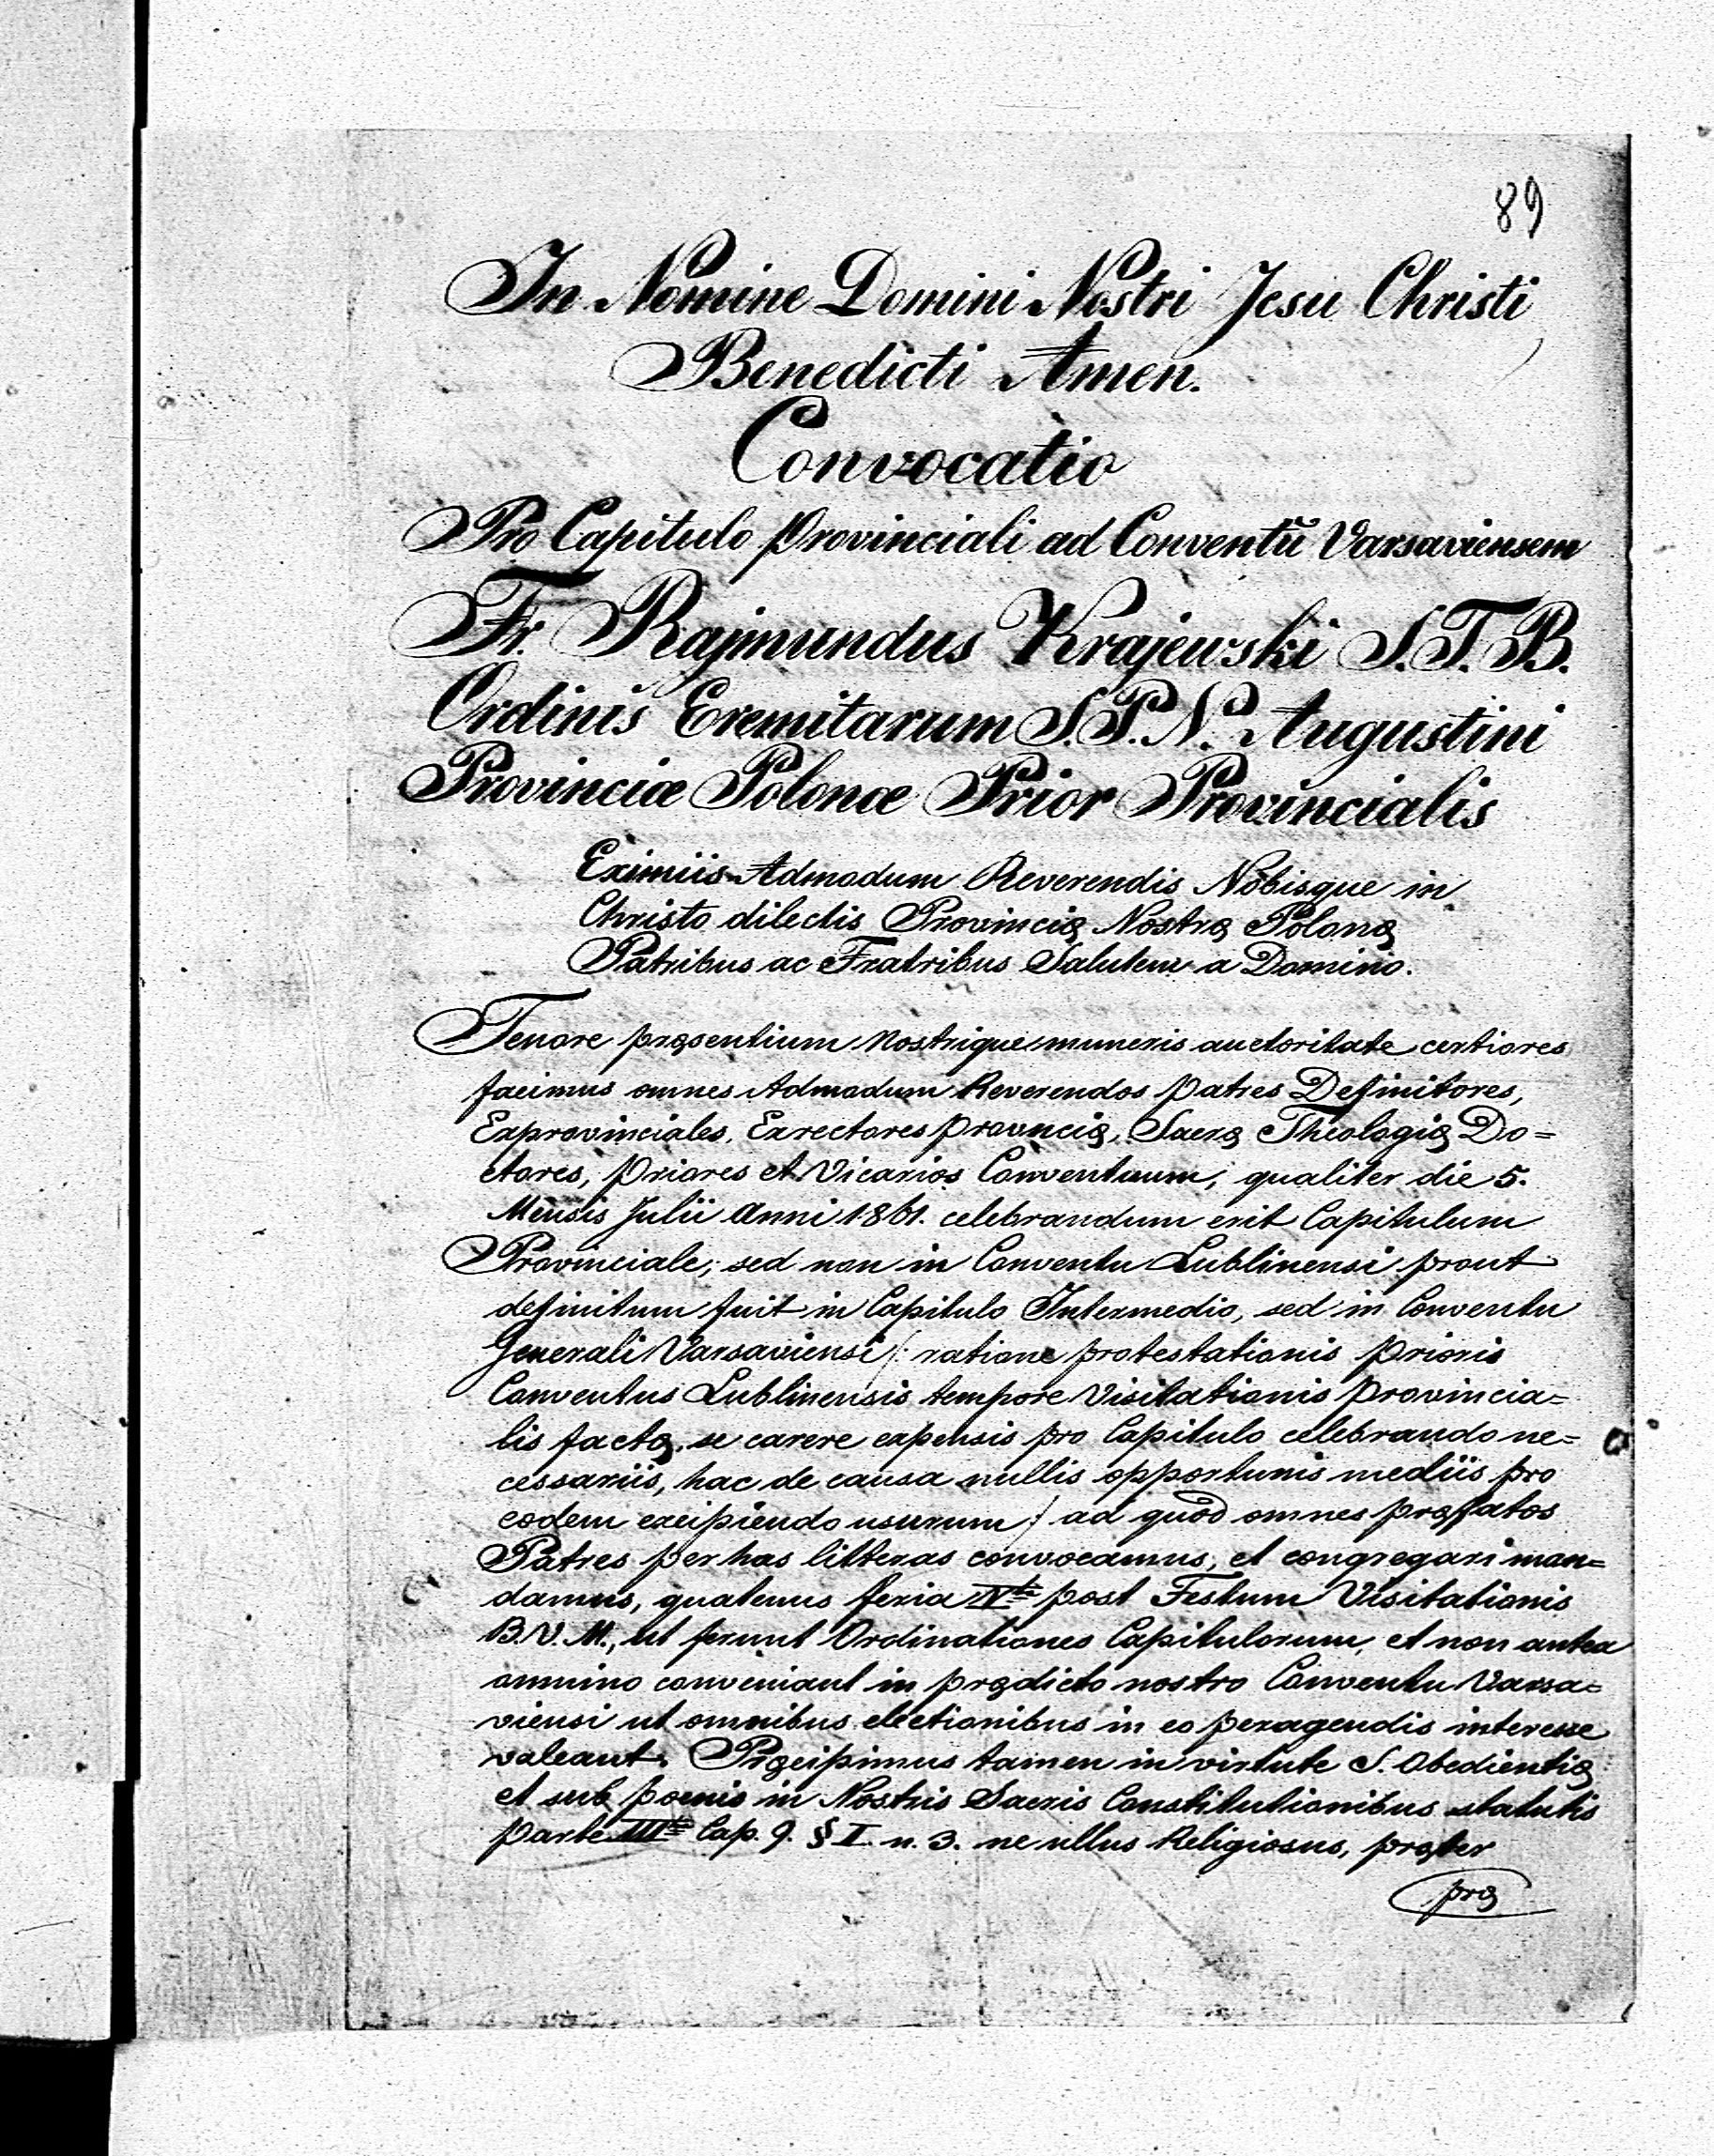 89
In Nomine Domini Nostri Jesu Christi
Benedicti Amen.
Convocatio
Pro Capitulo Provinciali ad Conventũ Varsaviensem
Fr. Rajmundus Krajewski S.T.B.
Ordinis Eremitarum S.P.N. Augustini
Provinciæ Polonæ Prior Provincialis
Eximiis Admodum Reverendis Nobisque in
Christo dilectis Provincię Nostrę Polonę
Patribus ac Fratribus Salutem a Domino.
Tenore pręsentium nostrique muneris auctoritate certiores
facimus omnes Admodum Reverendos patres Definitores,
Exprovinciales, Exrectores provincię, Sacrę Theologię Do=
ctores, priores et Vicarios Conventuum, qualiter die 5.
Mensis Julii Anni 1861. celebrandum erit Capitulum
Provinciale; sed non in Conventu Lublinensi prout
definitum fuit in Capitulo Intermedio, sed in Conventu
Generali Varsaviensi /: ratione protestationis prioris
Conventus Lublinensis tempore Visitationis provincia=
lis factę, se carere expensis pro Capitulo celebrando ne=
cessariis, hac de causa nullis opportunis mediis pro
eodem excipiendo usurum :/ ad quod omnes pręfatos
Patres per has litteras convocamus, et congregari man=
damus, quatenus feria IVta post Festum Visitationis
B.V.M., ut ferunt Ordinationes Capitulorum, et non antea
omnino conveniant in prędicto nostro Conventu Varsa=
viensi ut omnibus electionibus in eo peragendis interesse
valeant. Pręcipimus tamen in virtute S. Obedientię
et sub poenis in Nostris Sacris Constitutionibus statutis
parte IIIta Cap. 9. § I. n. 3. ne ullus Religiosus, pręter
prę